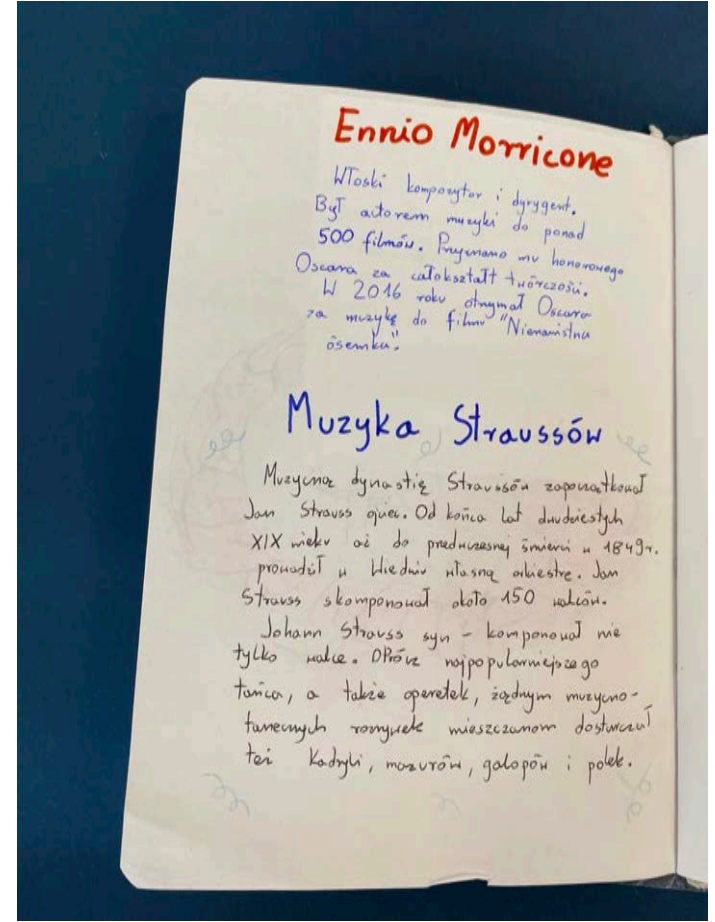 Ennio Morricone
Włoski kompozytor i dyrygent.
Był autorem muzyki do ponad
500 filmów. Przyznano mu honorowego
Oscara za całokształt twórczości.
W 2016 roku otrzymał Oscara
za muzykę do filmu "Nienawistna
ósemka".
Muzyka Straussów
Muzyczną dynastię Straussów zapoczątkował
Jan Strauss ojciec. Od końca lat dwudziestych
XIX wieku aż do przedwczesnej śmierci w 1849r.
prowadził w Wiedniu własną orkiestrę. Jan
Strauss skomponował około 150 walców.
Johann Strauss syn - komponował nie
tylko walce. Oprócz najpopularniejszego
tańca, a także operetek, żądnym muzyczno-
tanecznych rozrywek mieszczanom dostarczał
też kadryli, mazurów, galopów i polek.